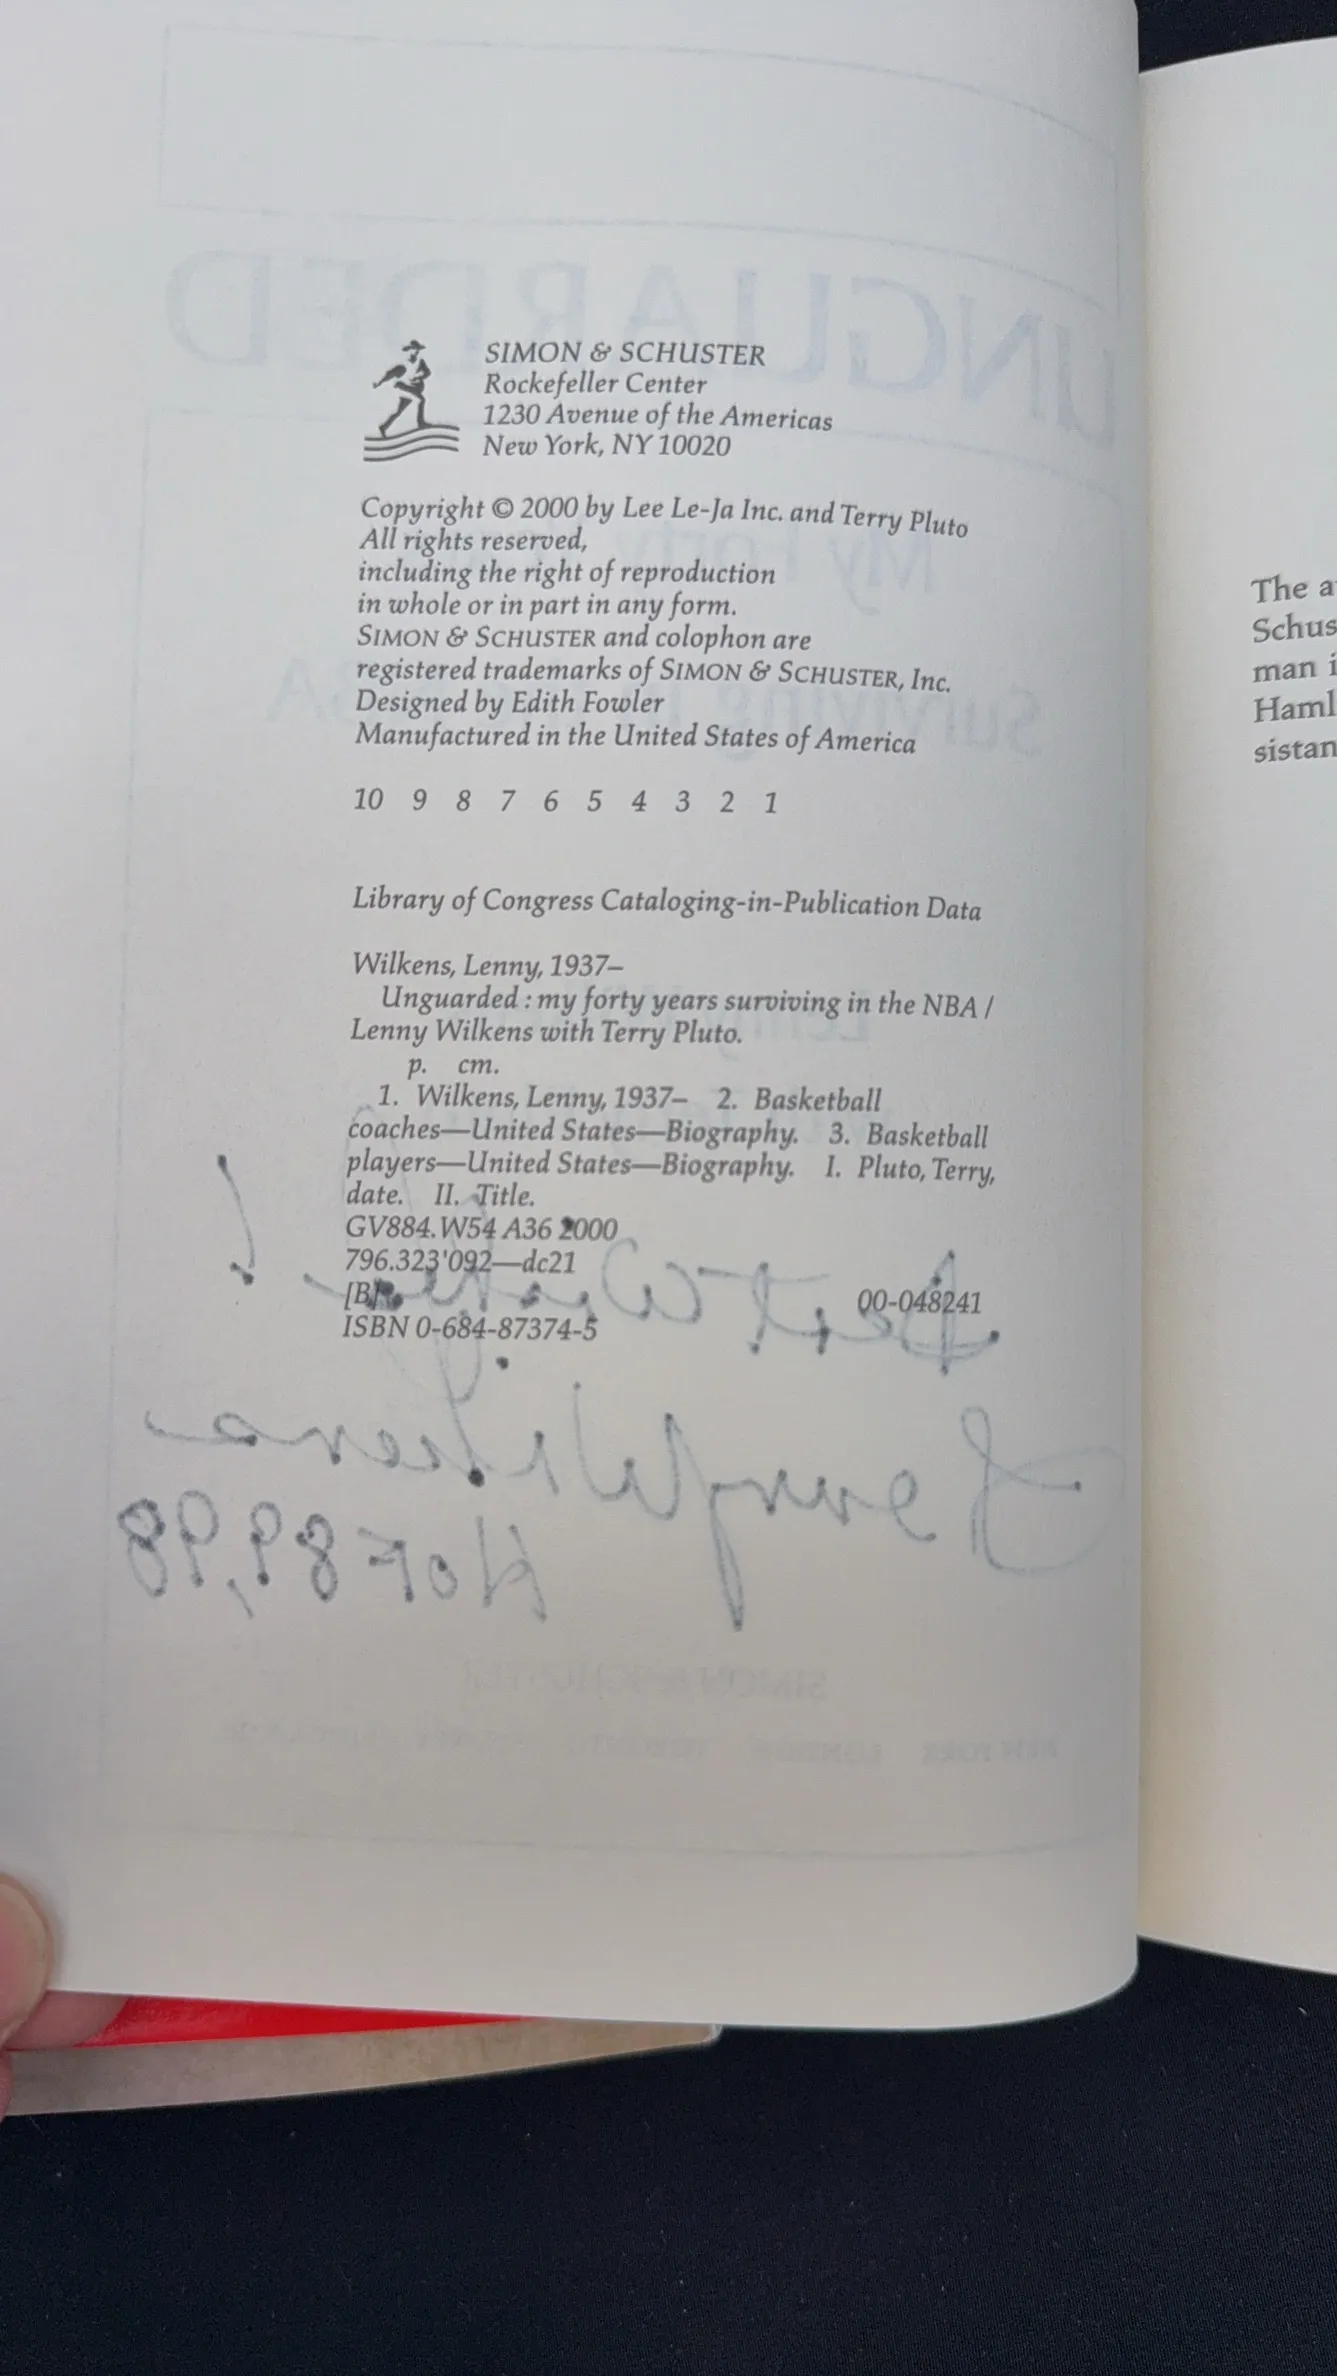 SIMON & SCHUSTER
Rockefeller Center
1230 Avenue of the Americas
New York, NY 10020
Copyright © 2000 by Lee Le-Ja Inc. and Terry Pluto
All rights reserved,
including the right of reproduction
in whole or in part in any form.
SIMON & SCHUSTER and colophon are
registered trademarks of SIMON & SCHUSTER, Inc.
Designed by Edith Fowler
Manufactured in the United States of America
10 9 8 7 6 5 4 3 2 1
Library of Congress Cataloging-in-Publication Data
Wilkens, Lenny, 1937–
Unguarded : my forty years surviving in the NBA /
Lenny Wilkens with Terry Pluto.
p. cm.
1. Wilkens, Lenny, 1937– 2. Basketball
coaches—United States—Biography. 3. Basketball
players—United States—Biography. I. Pluto, Terry,
date. II. Title.
GV884.W54 A36 2000
796.323'092—dc21
[B] 00-048241
ISBN 0-684-87374-5
UNGUARDED
My Forty
Surviving
Best Wishes!
Lenny Wilkens
HOF 89, 98
SIMON & SCHUSTER
NEW YORK LONDON TORONTO
The a
Schus
man i
Haml
sistan